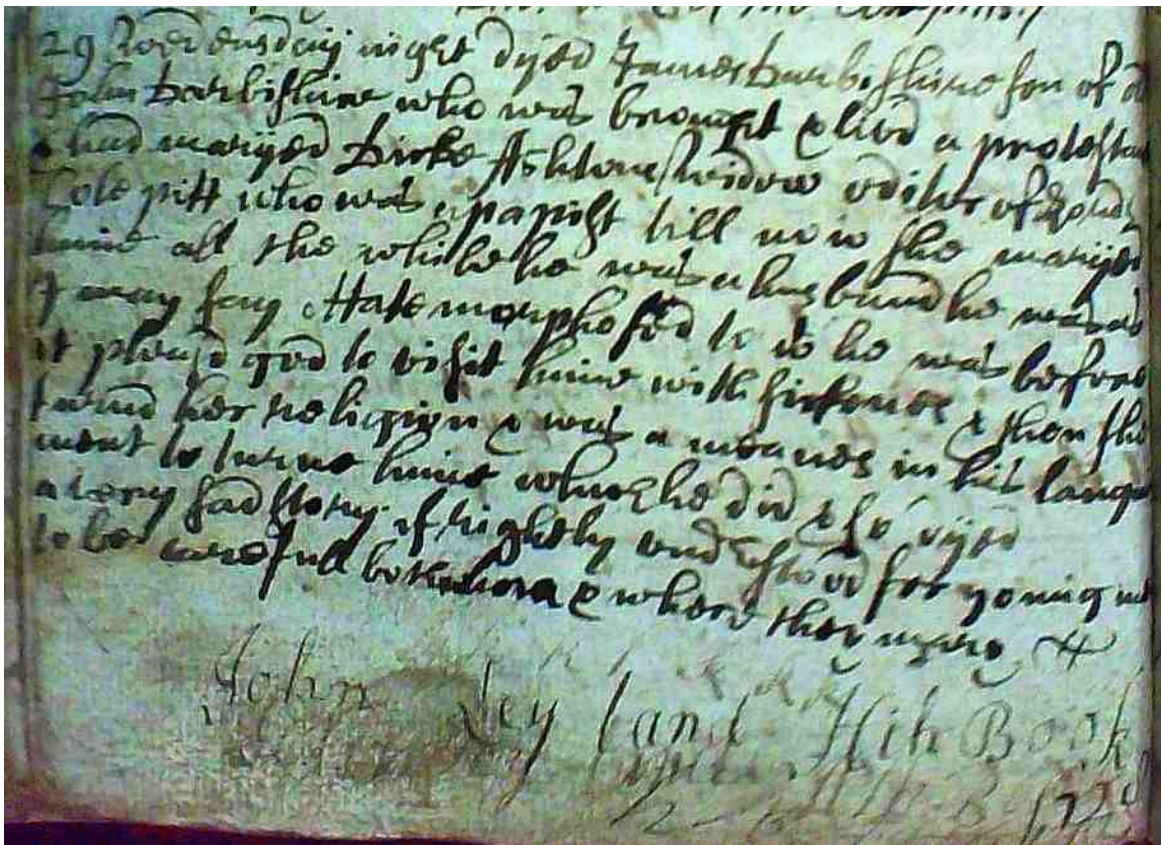 29 wedensday night dyed James Darbishire son of
John Darbishire who was brought & lived a protestan
& had maryed Dicke Ashtons widow
Cole pitt who was a papist till now she maryed
hime all the while he was a husband he was
I may say Hatemorphosed to wt he was before
it pleased god to visit hime with sicknes & then she
turnd her religion & was a meanes in his langu
ment to turne hime which he did & so dyed
a very sad story if rightly undestood for young me
to be carefull both whom & where they mary
John Leyland His Book